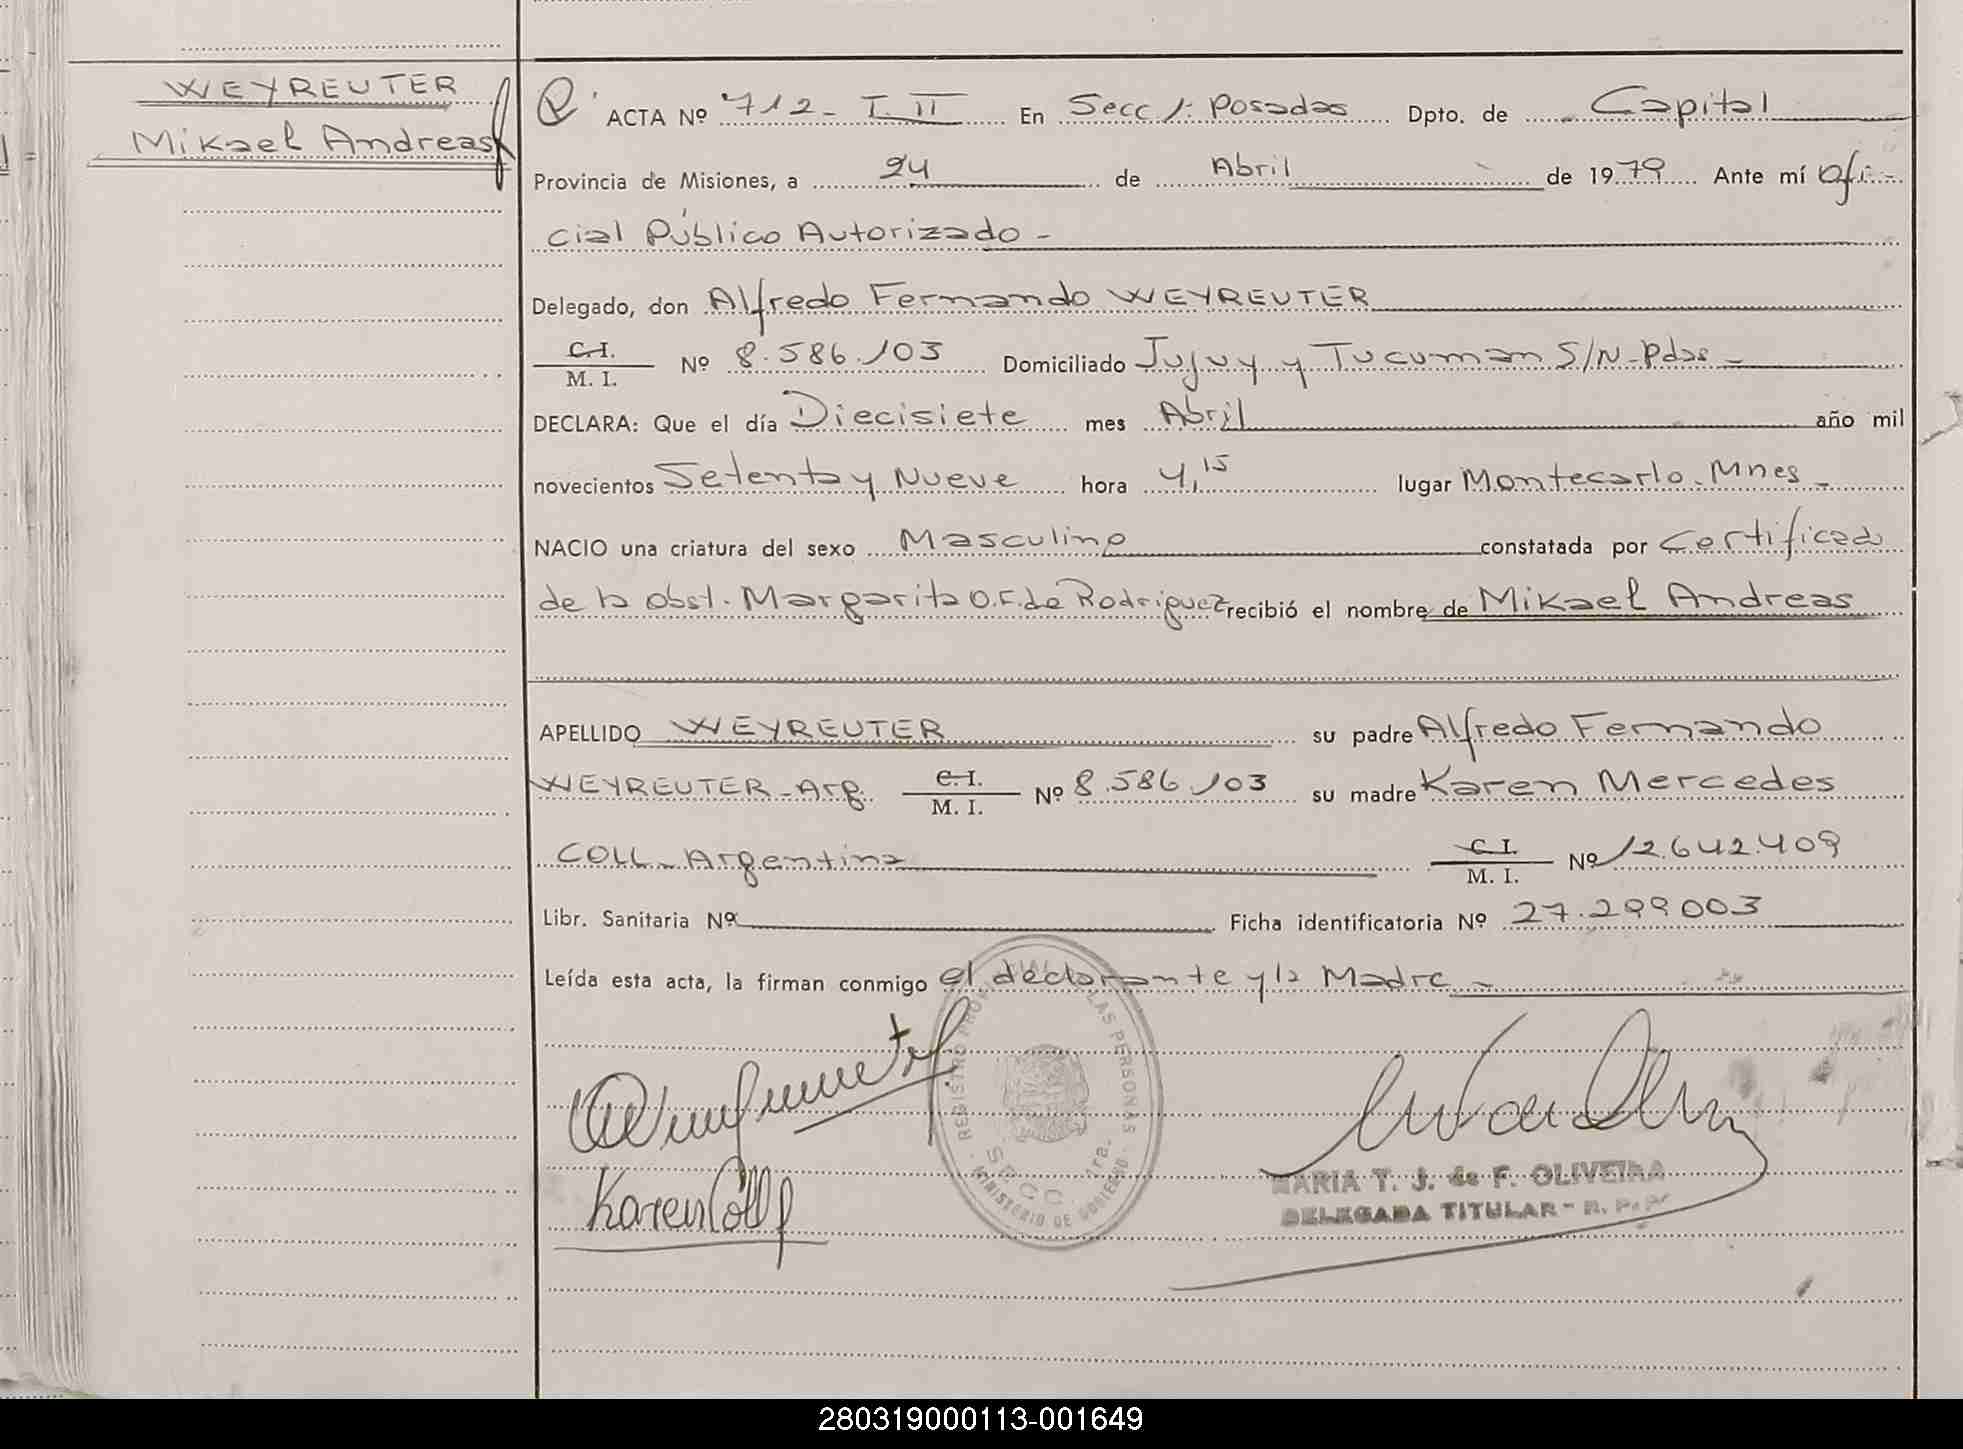 WEYREUTER
Mikael Andreas
ACTA Nº 712 - T. II En Secc 1: Posadas Dpto. de Capital
Provincia de Misiones, a 24 de Abril de 1979 Ante mí Ofi-
cial Público Autorizado -
Delegado, don Alfredo Fernando WEYREUTER
C.I.
M. I. Nº 8.586.103 Domiciliado Jujuy y Tucuman S/N - Pdas -
DECLARA: Que el día Diecisiete mes Abril año mil
novecientos Setenta y Nueve hora 4,15 lugar Montecarlo - Mnes -
NACIO una criatura del sexo Masculino constatada por Certificado
de la obst. Margarita O.F. de Rodriguez recibió el nombre de Mikael Andreas
APELLIDO WEYREUTER su padre Alfredo Fernando
WEYREUTER - Arg. C.I. M. I. Nº 8.586.103 su madre Karen Mercedes
COLL - Argentina C.I. M. I. Nº 12.642.409
Libr. Sanitaria Nº Ficha identificatoria Nº 27.299.003
Leída esta acta, la firman conmigo el declarante y la Madre -
REGISTRO PROVINCIAL DE LAS PERSONAS
SECC. 1ra.
MINISTERIO DE GOBIERNO
Karen Coll
MARIA T. J. de F. OLIVEIRA
DELEGADA TITULAR - R. P. P.
280319000113-001649